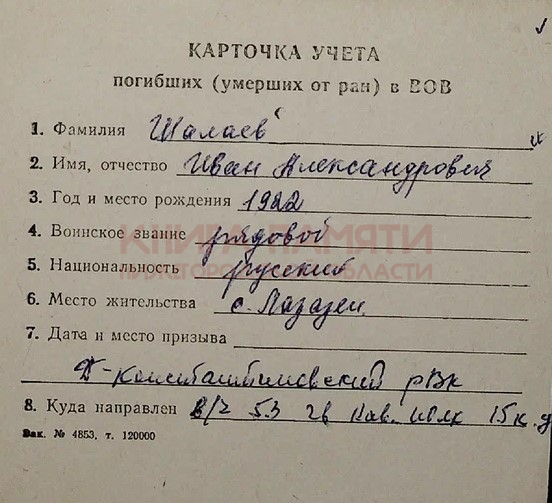 КАРТОЧКА УЧЕТА
погибших (умерших от ран) в ВОВ
1. Фамилия Шалаев
2. Имя, отчество Иван Александрович
3. Год и место рождения 1922
4. Воинское звание рядовой
КНИГА ПАМЯТИ
5. Национальность русский
НИЖЕГОРОДСКОЙ ОБЛАСТИ
6. Место жительства с.
7. Дата и место призыва
Д-Константиновский рвк
8. Куда направлен в/ч 53 гв кав. полк 15 к. д
Зак. № 4853, т. 120000